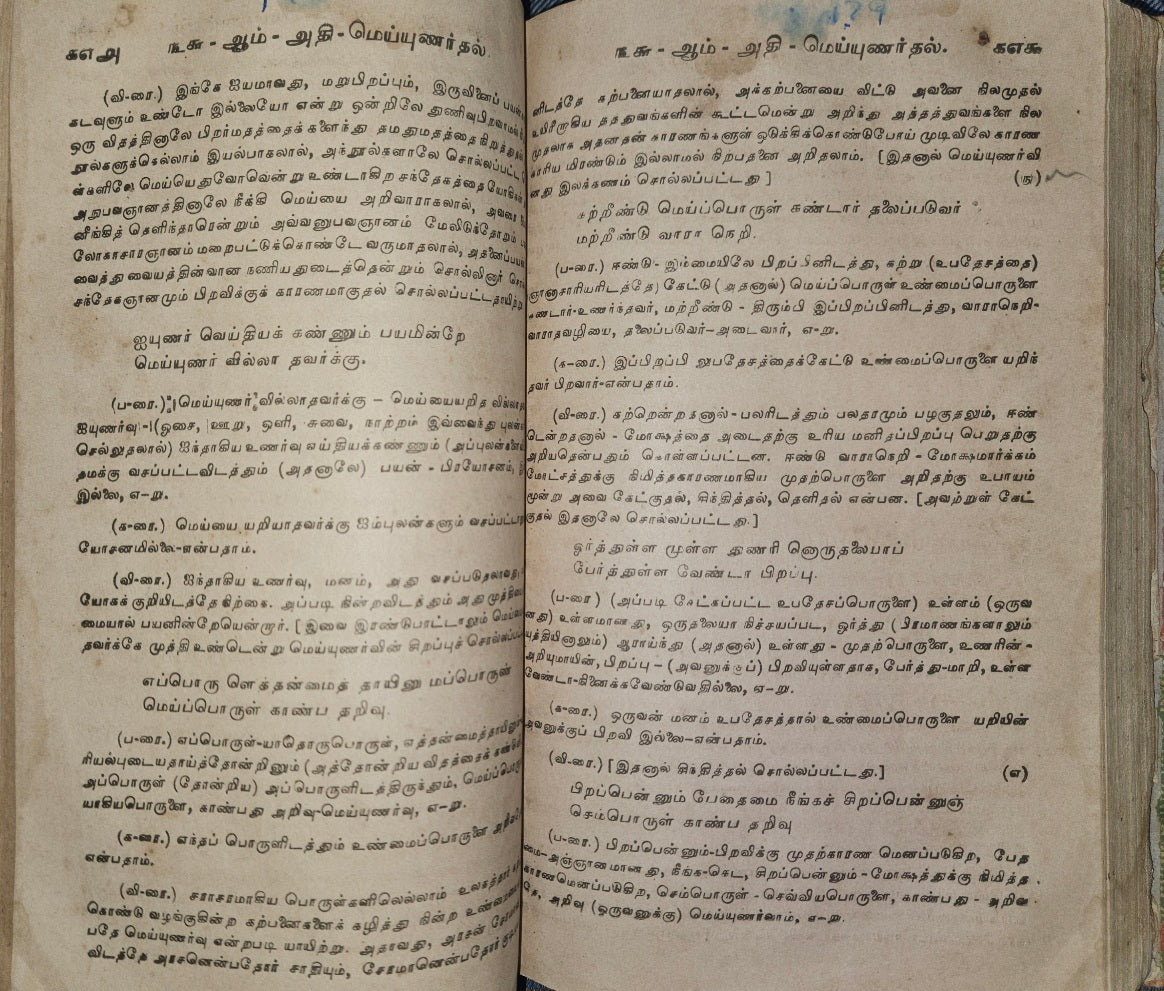 ௧௭௮ ௩௬ - ஆம் - அதி - மெய்யுணர்தல்.
(வி-ரை.) இங்கே ஐயமாவது, மறுபிறப்பும், இருவினைப் பயனும்
கடவுளும் உண்டோ இல்லையோ என்று ஒன்றிலே துணிவுபிறவாமல்
ஒரு விதத்தினாலே பிறர்மதத்தைக்களைந்து தமதுமதத்தை நிறுத்துதல்
நூல்களுக்கெல்லாம் இயல்பாகலால், அந்நூல்களாலே சொல்லப்பட்ட
ள்களிலே மெய்யெதுவோவென்று உண்டாகிற சந்தேகத்தை யோகிகள்
அநுபவஞானத்தினாலே நீக்கி மெய்யை அறிவாராகலால், அவரை
னீங்கித் தெளிந்தாரென்றும் அவ்வனுபவஞானம் மேலிடுந்தோறும்
லோகாசாரஞானம் மறைபட்டுக்கொண்டே வருமாதலால், அதனைப்பயன்
வைத்து வையத்தின்வான நணியதுடைத்தென்றும் சொல்லினார்
சந்தேகஞானமும் பிறவிக்குக் காரணமாகுதல் சொல்லப்பட்டதாயிற்று
ஐயுணர் வெய்தியக் கண்ணும் பயமின்றே
மெய்யுணர் வில்லா தவர்க்கு.
(ப-ரை.) மெய்யுணர்வில்லாதவர்க்கு – மெய்யையறித வில்லாத
ஐயுணர்வு-(ஓசை, ஊறு, ஒளி, சுவை, நாற்றம் இவ்வைந்து புலன்
செல்லுதலால்) ஐந்தாகிய உணர்வு எய்தியக்கண்ணும் (அப்புலன்களை
தமக்கு வசப்பட்டவிடத்தும் (அதனாலே) பயன் - பிரயோசனம்,
இல்லை, எ–று.
(க-ரை.) மெய்யை யறியாதவர்க்கு ஐம்புலன்களும் வசப்பட்டாலும்
யோசனமில்லை-என்பதாம்.
(வி-ரை.) ஐந்தாகிய உணர்வு, மனம், அது வசப்படுதலாவது,
யோகக் குறியிடத்தே நிற்கை. அப்படி நின்றவிடத்தும் அது முத்தி
மையால் பயனின்றேயென்றார். [இவை இரண்டுபாட்டாலும் மெய்யை
தவர்க்கே முத்தி உண்டென்று மெய்யுணர்வின் சிறப்புச் சொல்லப்பட்ட
எப்பொரு ளெத்தன்மைத் தாயினு மப்பொருண்
மெய்ப்பொருள் காண்ப தறிவு.
(ப-ரை.) எப்பொருள்-யாதொருபொருள், எத்தன்மைத்தாயினும்
ரியல்புடையதாய்த்தோன்றினும் (அத்தோன்றிய விதத்தைக் கண்டு
அப்பொருள் (தோன்றிய) அப்பொருளிடத்திருக்கும், மெய்ப்பொருள்
யாகியபொருளை, காண்பது அறிவு-மெய்யுணர்வு, எ–று.
(க-ரை.) எந்தப் பொருளிடத்தும் உண்மைப்பொருளை அறிவ
என்பதாம்.
(வி-ரை.) சராசரமாகிய பொருள்களிலெல்லாம் உலகத்தார்
கொண்டு வழங்குகின்ற கற்பனைகளைக் கழித்து நின்ற உண்மையை
பதே மெய்யுணர்வு என்றபடி யாயிற்று. அதாவது, அரசன் சேரமான்
விடத்தே அரசனென்பதோர் சாதியும், சேரமானென்பதோர் குடியும்
௩௬ - ஆம் - அதி - மெய்யுணர்தல். ௧௭௯
னிடத்தே கற்பனையாதலால், அக்கற்பனையை விட்டு அவனை நிலமுதல்
உயிரீறாகிய தத்துவங்களின் கூட்டமென்று அறிந்து அத்தத்துவங்களை நில
முதலாக அதனதன் காரணங்களுள் ஒடுக்கிக்கொண்டுபோய் முடிவிலே காரண
காரிய மிரண்டும் இல்லாமல் நிற்பதனை அறிதலாம். [இதனால் மெய்யுணர்வி
னது இலக்கணம் சொல்லப்பட்டது] (௫)
கற்றீண்டு மெய்ப்பொருள் கண்டார் தலைப்படுவர்
மற்றீண்டு வாரா நெறி.
(ப-ரை.) ஈண்டு- இம்மையிலே பிறப்பினிடத்து, கற்று (உபதேசத்தை)
ஞானாசாரியரிடத்தே) கேட்டு (அதனால்) மெய்ப்பொருள் உண்மைப்பொருளை
கண்டார்-உணர்ந்தவர், மற்றீண்டு - திரும்பி இப்பிறப்பினிடத்து, வாராநெறி-
வாராதவழியை, தலைப்படுவர்–அடைவார், எ-று.
(க–ரை.) இப்பிறப்பி லுபதேசத்தைக்கேட்டு உண்மைப்பொருளை யறிந்
தவர் பிறவார்-என்பதாம்.
(வி-ரை.) கற்றென்றதனால் - பலரிடத்தும் பலதரமும் பழகுதலும், ஈண்
டென்றதனால் - மோக்ஷத்தை அடைதற்கு உரிய மனிதப்பிறப்பு பெறுதற்கு
அறியதென்பதும் கொள்ளப்பட்டன. ஈண்டு வாராநெறி - மோக்ஷமார்க்கம்
மோட்சத்துக்கு நிமித்தகாரணமாகிய முதற்பொருளை அறிதற்கு உபாயம்
மூன்று அவை கேட்குதல், சிந்தித்தல், தெளிதல் என்பன. [அவற்றுள் கேட்
குதல் இதனாலே சொல்லப்பட்டது.]
ஓர்த்துள்ள முள்ள துணரி னொருதலையாப்
பேர்த்துள்ள வேண்டா பிறப்பு.
(ப-ரை) (அப்படி கேட்கப்பட்ட உபதேசப்பொருளை) உள்ளம் (ஒருவ
னது) உள்ளமானது, ஒருதலையா நிச்சயப்பட, ஓர்த்து (பிரமாணங்களாலும்
யுத்தியினாலும்) ஆராய்ந்து (அதனால்) உள்ளது - முதற்பொருளை, உணரின்-
அறியுமாயின், பிறப்பு – (அவனுக்குப்) பிறவியுள்ளதாக, பேர்த்து-மாறி, உள்ள
வேண்டா-நினைக்கவேண்டுவதில்லை, எ–று.
(க-ரை.) ஒருவன் மனம் உபதேசத்தால் உண்மைப்பொருளை யறியின்
அவனுக்குப் பிறவி இல்லை–என்பதாம்.
(வி-ரை.) [இதனால் சிந்தித்தல் சொல்லப்பட்டது.] (௭)
பிறப்பென்னும் பேதைமை நீங்கச் சிறப்பென்னுஞ்
செம்பொருள் காண்ப தறிவு
(ப-ரை.) பிறப்பென்னும்-பிறவிக்கு முதற்காரண மெனப்படுகிற, பேத
மை–அஞ்ஞானமானது, நீங்க-கெட, சிறப்பென்னும் - மோக்ஷத்துக்கு நிமித்த
காரணமெனப்படுகிற, செம்பொருள் - செவ்வியபொருளை, காண்பது - அறிவ
தே, அறிவு (ஒருவனுக்கு) மெய்யுணர்வாம், எ–று.